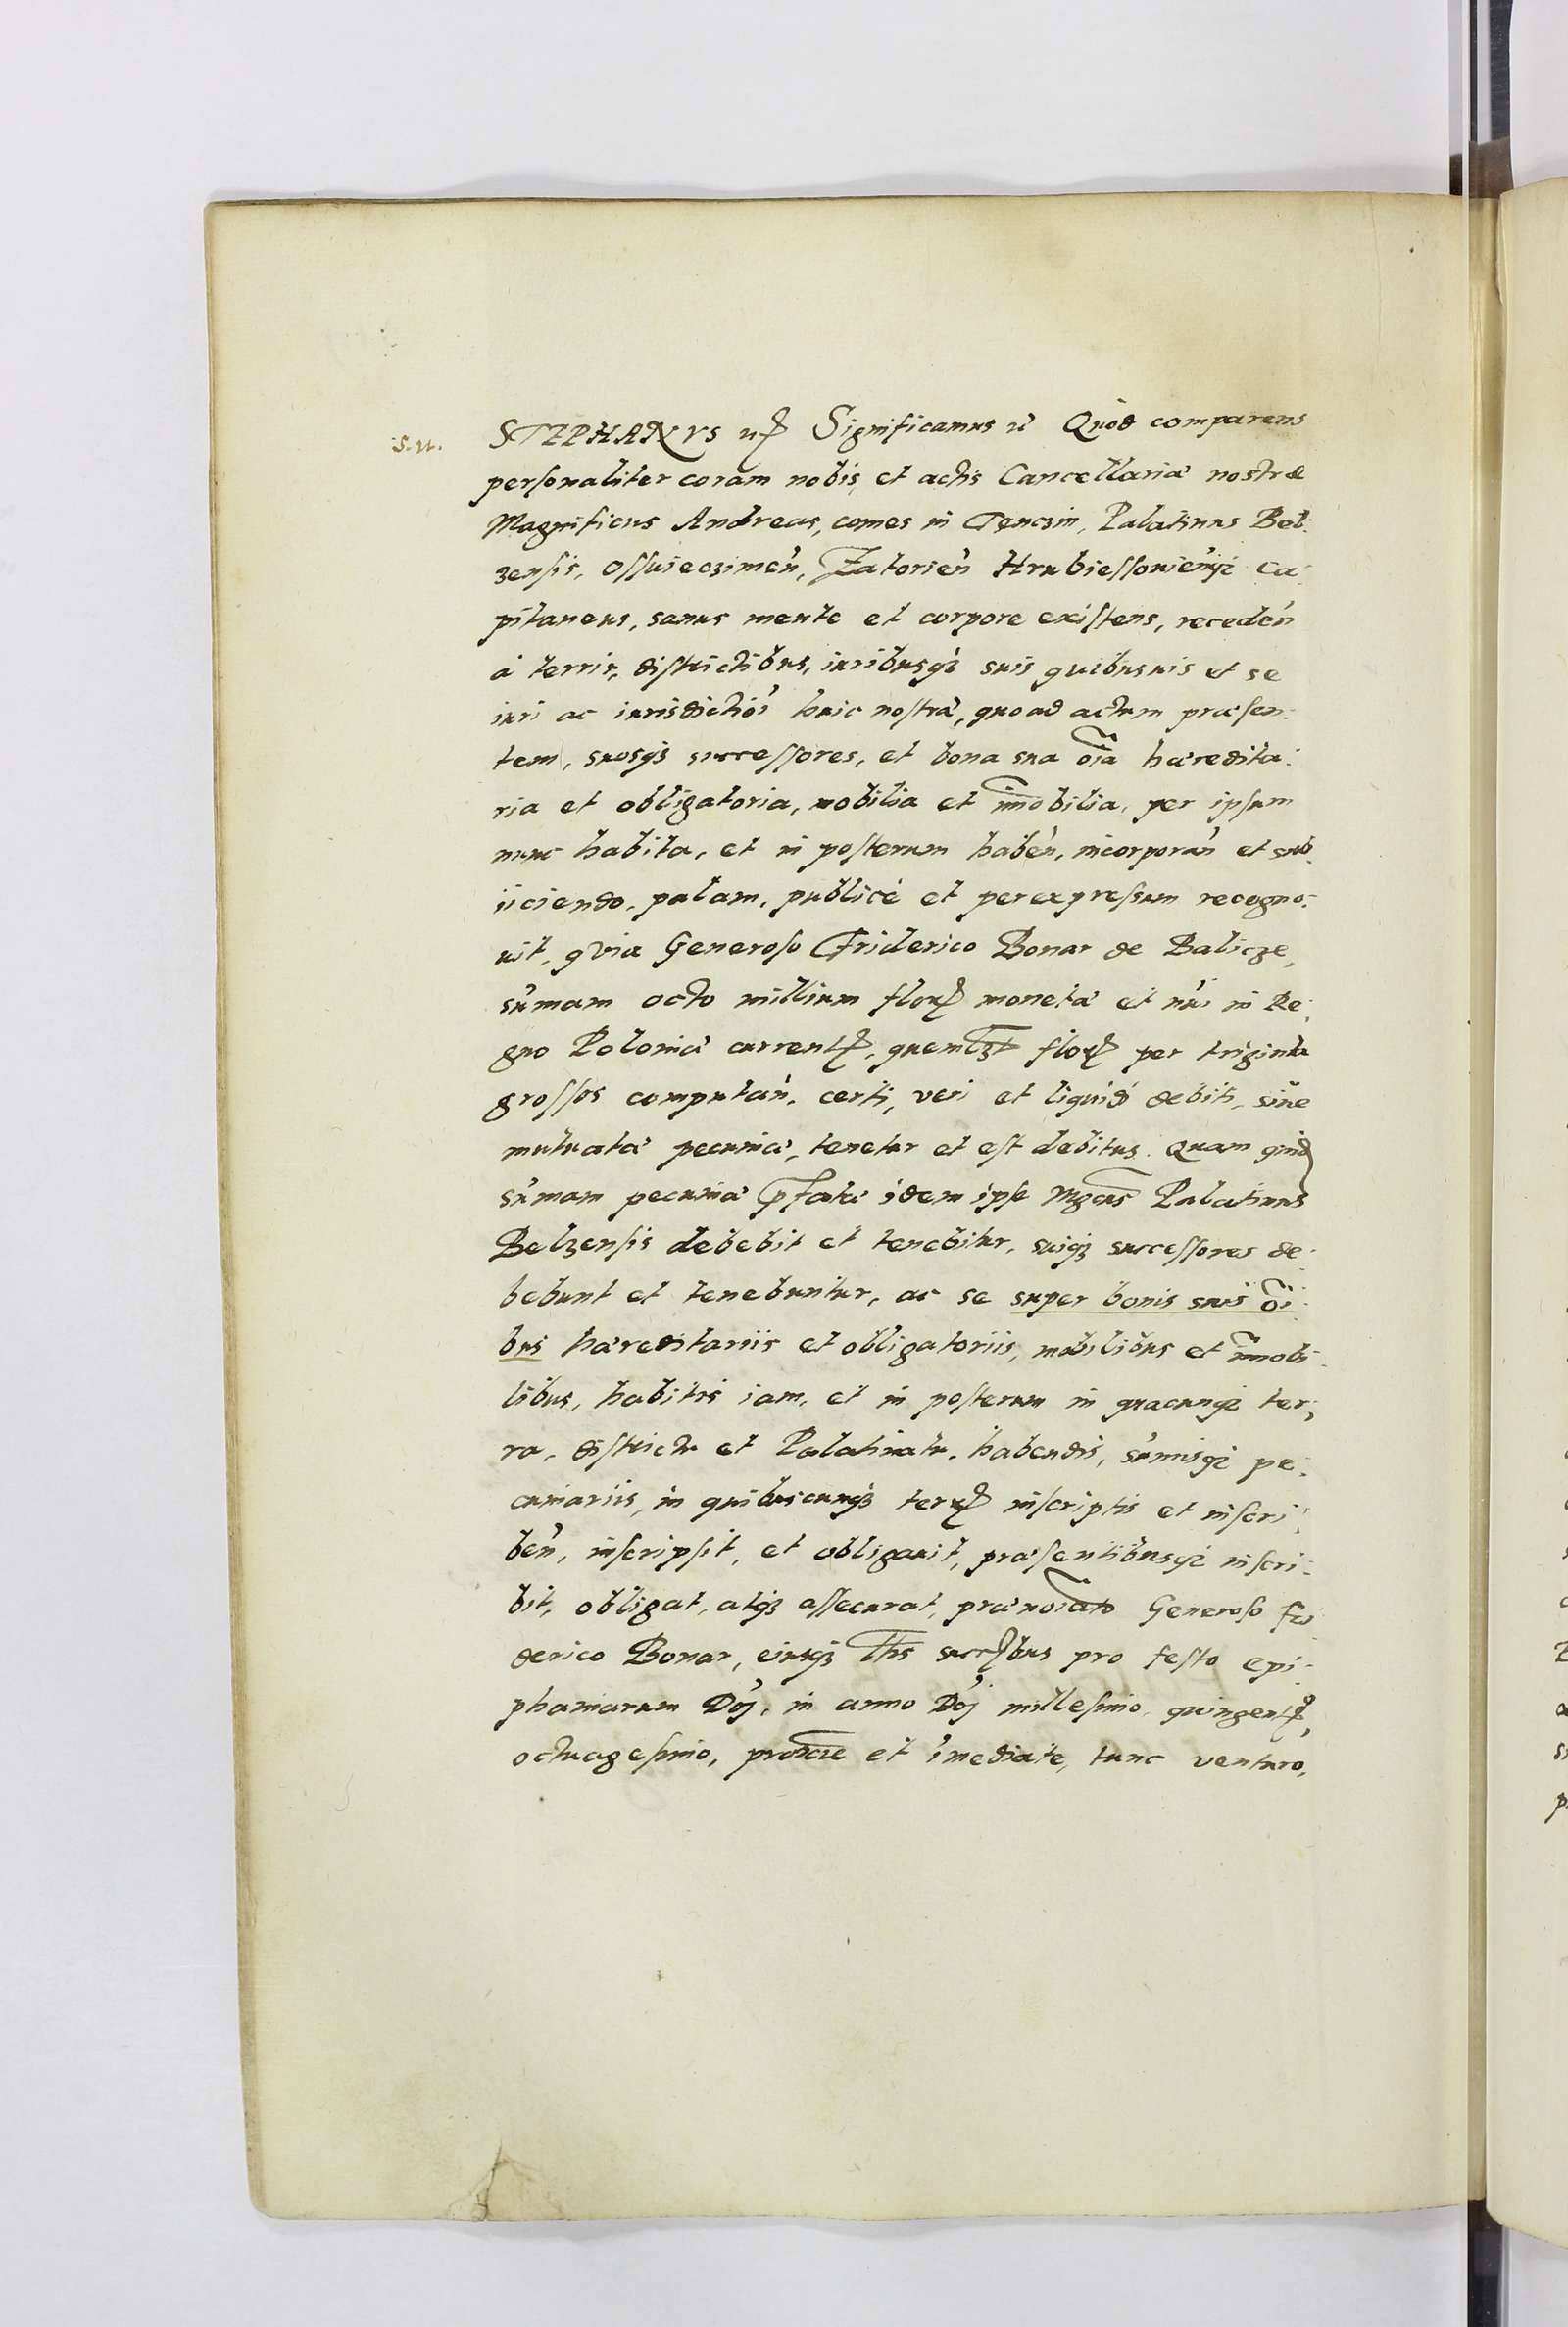 S. N. STEPHANVS Significamus Quod comparens
personaliter coram nobis, et actis Cancellariæ nostræ
Magnificus Andreas, comes in Tenczin, Palatinus Bel:
zensis, Osswieczimeń, Zatorień Hrubiessowieńqz ca:
pitaneus, sanus mente et corpore existens, recedeń
à terris, districtibus, iuribusqz suis quibusuis et se
iuri ac iurisdictioi huic nostræ, quo ad actum præsen:
tem, suosqz successores, et bona sua oia hæredita:
ria et obligatoria, mobilia et immobilia, per ipsum
nunc habita, et in posterum habeń, incorporań et sub:
iiciendo, palam, publicè et per expressum recogno:
uit, quia Generoso Friderico Bonar de Balicze,
sum̃am octo millium flor moneta et nũi in Re:
gno Poloniæ current, quemlzt flor per triginta
grossos computań, certi, veri et liquidi debiti, siue
mutuatæ pecuniæ, tenetur et est debitus. Quam quid
sum̃am pecuniæ pfatæ idem ipse Mgcus Palatinus
Belzensis debebit et tenebitur, suiqz successores de:
bebunt et tenebuntur, ac se super bonis suis oi:
bus hæreditariis et obligatoriis, mobilibus et immobi:
libus, habitis iam, et in posterum in quacunqz ter:
ra, districtu et Palatinatu, habendis, sum̃isqz pe:
cuniariis, in quibuscunqz terris inscriptis et inscri:
beń, inscripsit, et obligauit, præsentibusqz inscri:
bit, obligat, atqz assecurat, prænoiato Generoso Fri
derico Bonar, eiusqz ltis succbus pro festo epi:
phaniarum Doj, in anno Doj millesimo quingent,
octuagesimo, proxie et im̃ediate, tunc venturo,